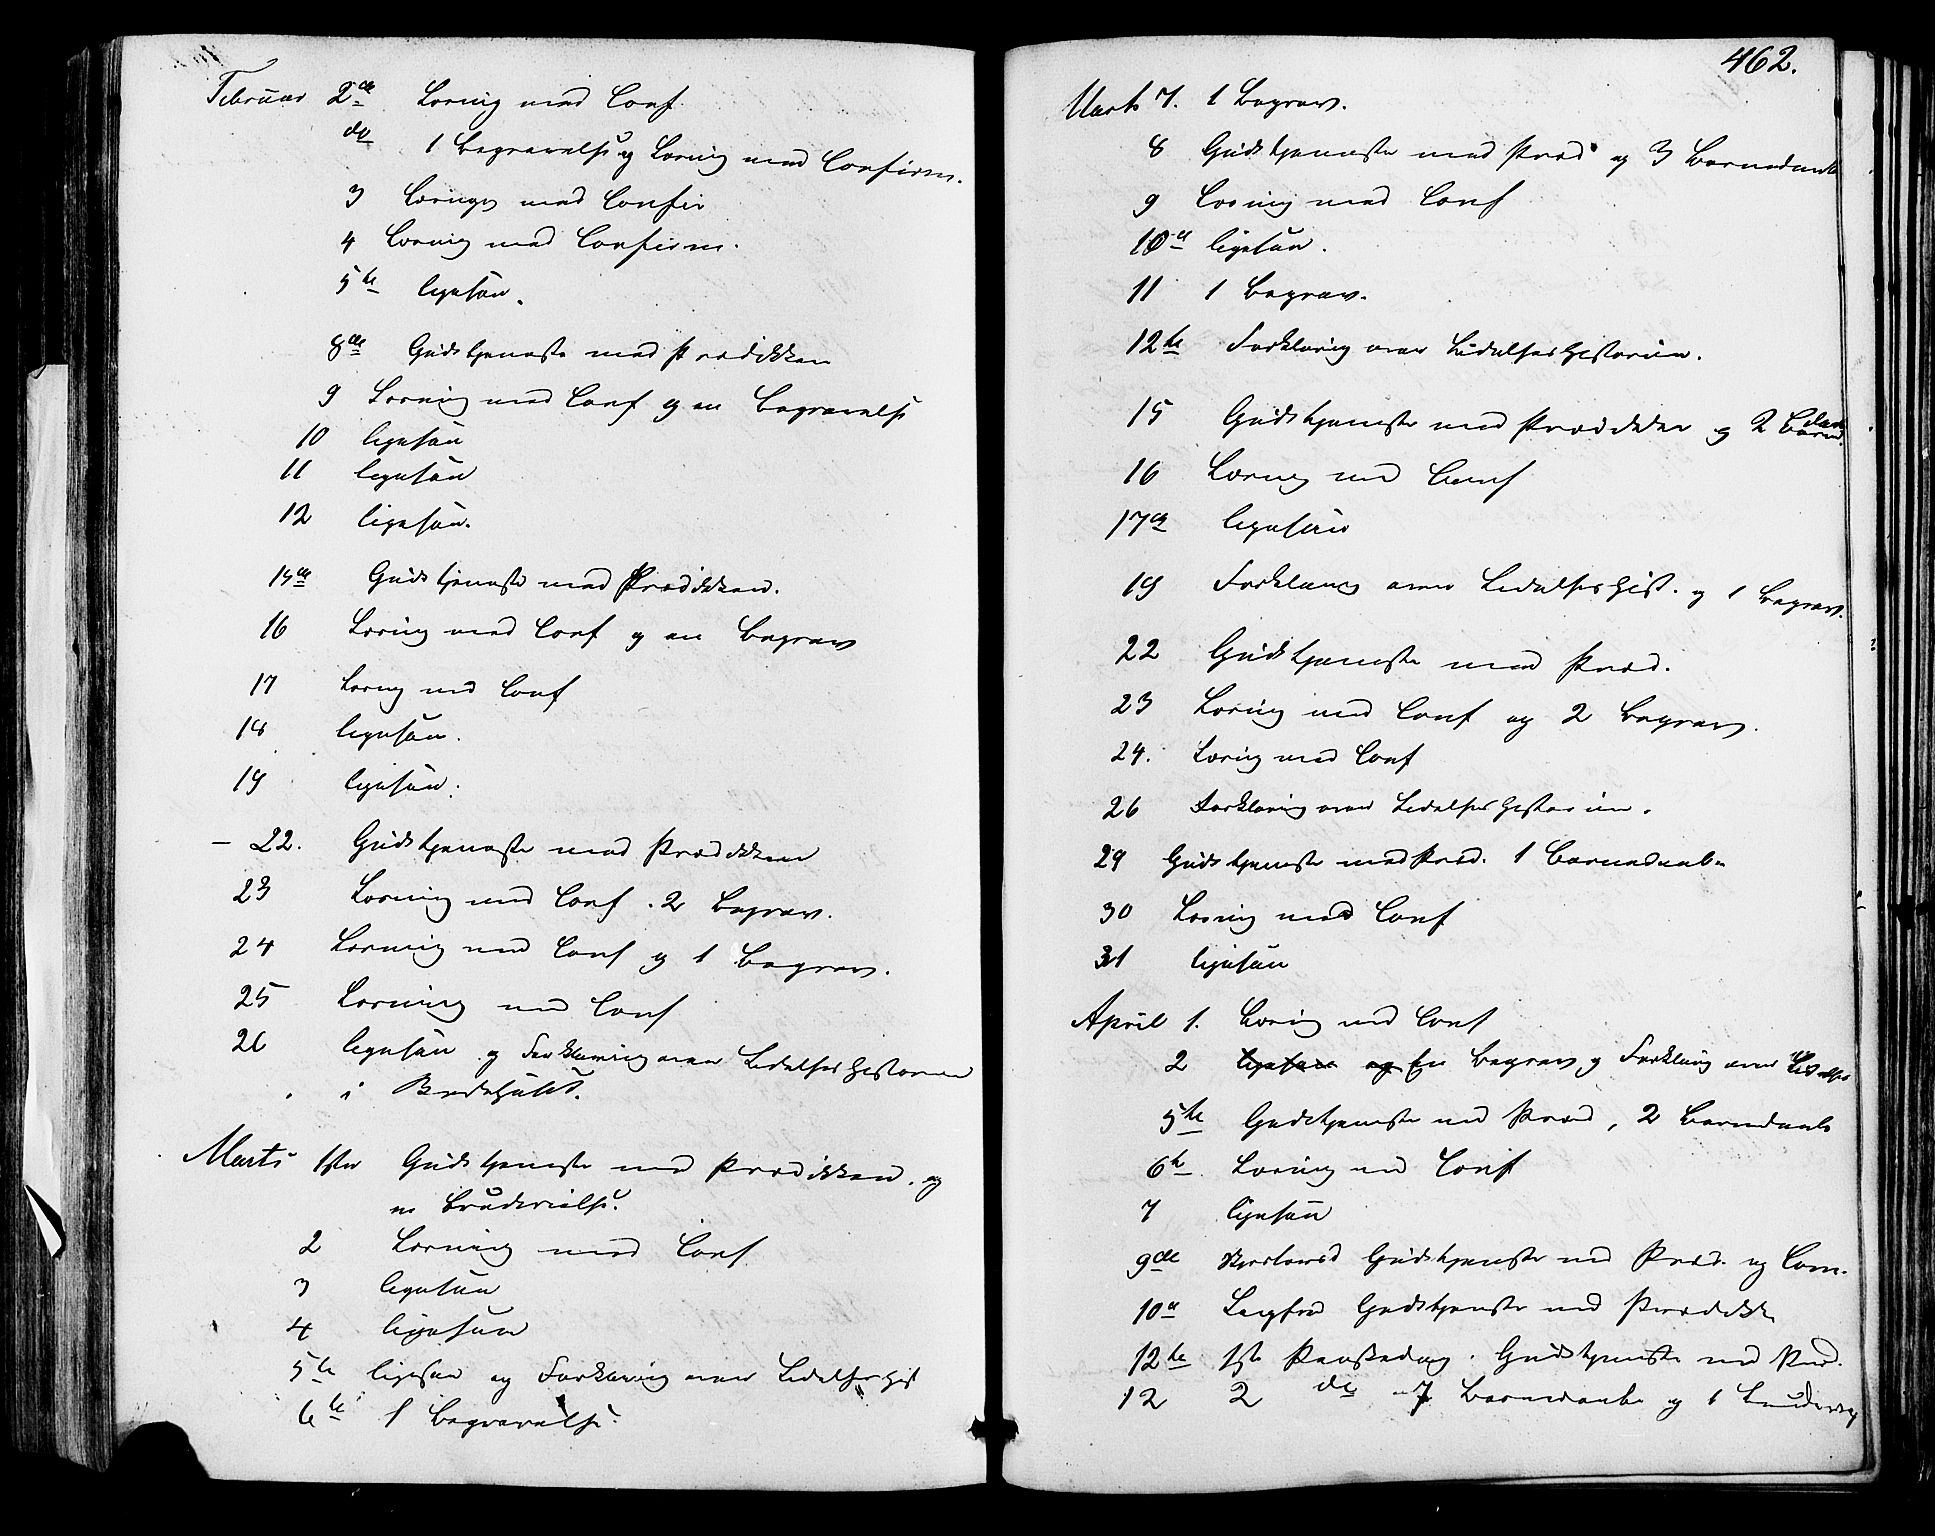 Februar 2de Læsning med Conf.
do 1 Begravelse og Læsning med Confirm.
3 Læsning med Confir
4 Læsning med Confirm.
5te ligesaa.
8de Gudstjeneste med Prædikken
9 Læsning med Conf og en Begravelse
10 ligesaa
11 ligesaa
12 ligesaa.
15de Gudstjeneste med Prædikken.
16 Læsning med Conf og en Begrav
17 Læsning med Conf
18 ligesaa.
19 ligesaa.
- 22. Gudstjeneste med Prædikken
23 Læsning med Conf. 2 Begrav.
24 Læsning med Conf og 1 Begrav.
25 Læsning med Conf
26 ligesaa og Forklaring over Lidelseshistorien
i Bedehuset.
Marts 1ste Gudstjeneste med Prædikken. og
en Brudevielse.
2 Læsning med Conf.
3 ligesaa
4 ligesaa
5te ligesaa og Forklaring over Lidelseshist
6te 1 Begravelse.
462.
Marts 7. 1 Begrav.
8 Gudstjeneste med Præd og 3 Barnedaab
9 Læsning med Conf
10de ligesaa.
11 1 Begrav.
12te Forklaring over Lidelseshistorien.
15 Gudstjeneste med Prædikken og 2 Barnedaab
16 Læsning med Conf
17de ligesaa
19 Forklaring over Lidelseshist. og 1 Begrav.
22 Gudstjeneste med Præd.
23 Læsning med Conf og 2 Begrav.
24. Læsning med Conf
26 Forklaring over Lidelseshistorien.
29 Gudstjeneste med Præd. 1 Barnedaab
30 Læsning med Conf
31 ligesaa
April 1. Læsning med Conf
2 ligesaa og En Begrav og Forklaring over Lidelses
5te Gudstjeneste med Præd, 2 Barnedaab
6te Læsning med Conf
7 ligesaa
9de Skjertorsd Gudstjeneste med Præd. og Com.
10de Langfred Gudstjeneste med Prædikk
12te 1ste Paaskedag. Gudstjeneste med Præd.
12 2 do 7 Barnedaab og 1